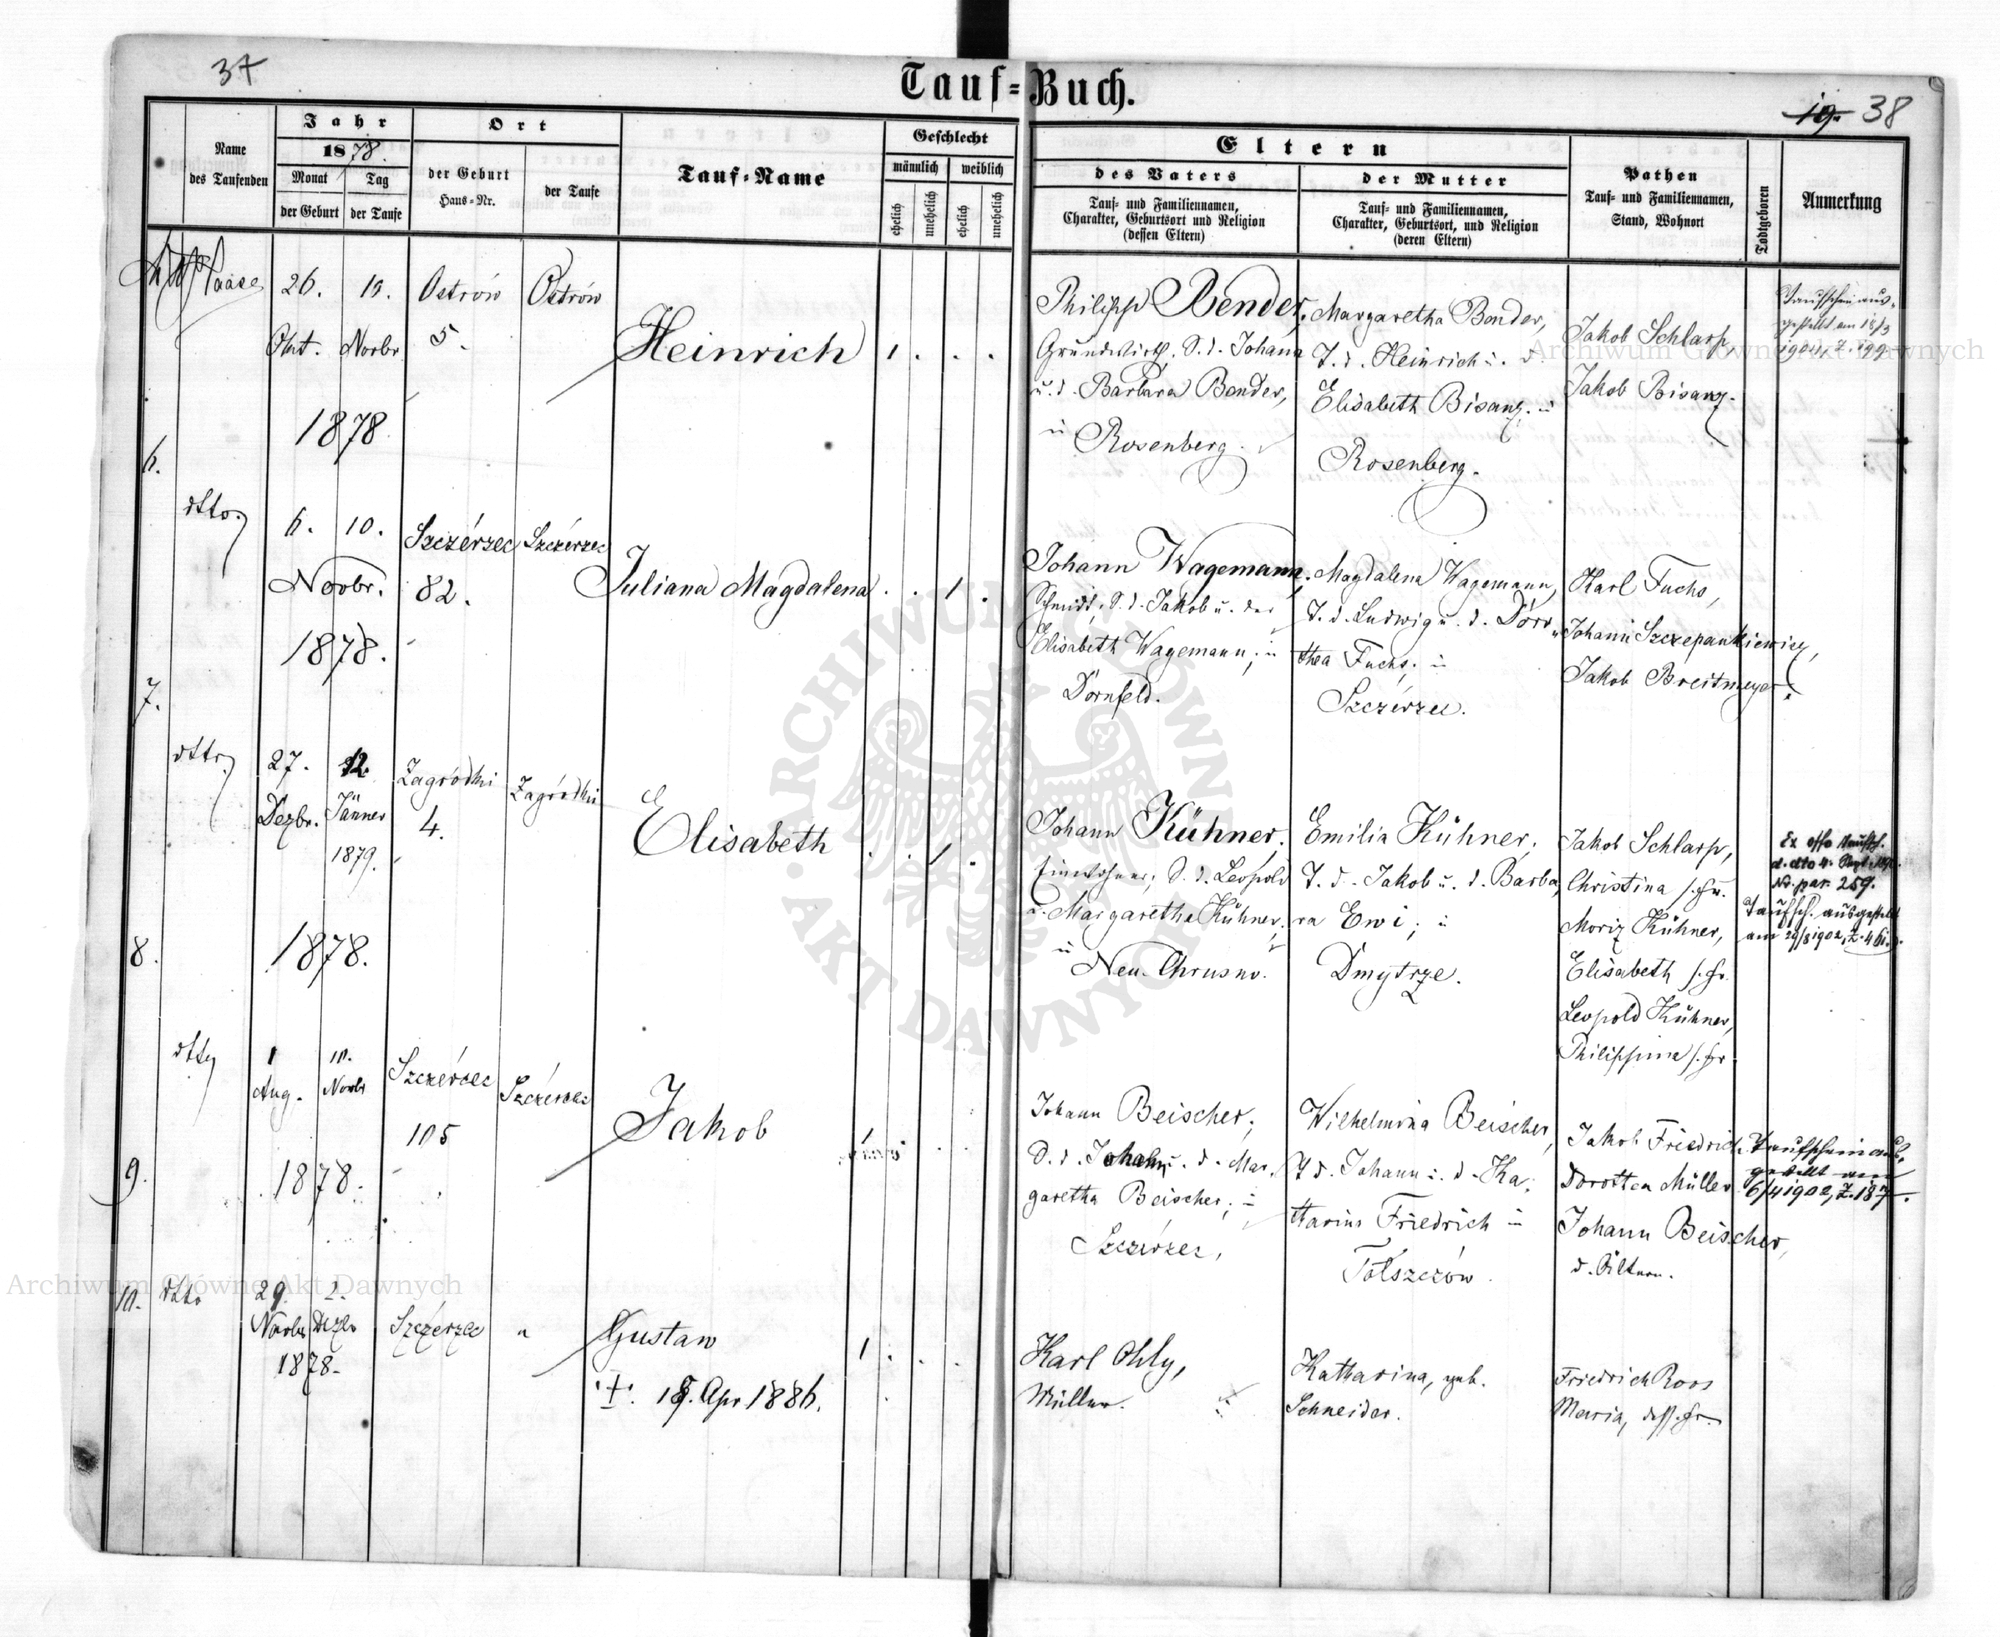 37
Tauf-Buch.
19. 38
Name
des Taufenden
Jahr
1878.
Monat
Tag
der Geburt
der Taufe
Ort
der Geburt
Haus-Nr.
der Taufe
Tauf-Name
Geschlecht
männlich
weiblich
ehelich
unehelich
ehelich
unehelich
Eltern
des Vaters
Tauf- und Familiennamen,
Charakter, Geburtsort und Religion
(dessen Eltern)
der Mutter
Tauf- und Familiennamen,
Charakter, Geburtsort, und Religion
(deren Eltern)
Pathen
Tauf- und Familiennamen,
Stand, Wohnort
Todtgeboren
Anmerkung
6.
Haase
26. 10.
Okt. Novbr
1878
Ostrów
5.
Ostrów
Heinrich
1 . . .
Philipp Bender,
Grundwirth, S. d. Johann
u. d. Barbara Bender,
in
Rosenberg.
Margaretha Bender,
T. d. Heinrich u. d.
Elisabeth Bisanz, in
Rosenberg.
Jakob Schlarp,
Jakob Bisanz.
Taufschein aus-
gestellt am 18/3
1901, Z. 199
7.
dtto
6. 10.
Novbr.
1878.
Szczérzec
82.
Szczérzec
Juliana Magdalena
. . 1 .
Johann Wagemann,
Schmidt, S. d. Jakob u. der
Elisabeth Wagemann, in
Dornfeld.
Magdalena Wagemann,
T. d. Ludwig u. d. Doro-
thea Fuchs, in
Szczérzec.
Karl Fuchs,
Johann Szczepankiewicz,
Jakob Breitmeyer.
8.
dtto
27. 12.
Dezbr. Jänner
1879.
1878.
Zagródki
4.
Zagródki
Elisabeth
. . 1 .
Johann Kühner,
Einwohner, S. d. Leopold
u. Margaretha Kühner,
in
Neu-Chrusno.
Emilia Kühner,
T. d. Jakob u. d. Barba,
ra Ewi; in
Dmytrze.
Jakob Schlarp,
Christina s. Fr.
Moriz Kühner,
Elisabeth s. Fr.
Leopold Kühner,
Philippina s. Fr.
Ex offo Taufsch.
No. par. 259.
Taufsch. ausgestellt
am 29/8 1902, Z. 461.
9.
dtto
1 10.
Aug. Novbr
1878.
Szczérzec
105
Szczérzec
Jakob
1 . .
Johann Beischer,
S. d. Johann u. d. Mar,
garetha Beischer, in
Szczérzec,
Wilhelmina Beischer,
T. d. Johann u. d. Ka,
tharina Friedrich in
Tolszczów.
Jakob Friedrich
Dorothea Müller
Johann Beischer,
d. Ältere.
Taufschein aus,
gestellt am
6/4 1902, Z. 187.
10.
dtto
29. 2.
Novbr Dezbr
1878.
Szczérzec
"
Gustaw
+ 18. Apr 1886.
1 . . .
Karl Ohly,
Müller.
Katharina, geb.
Schneider.
Friedrich Roos
Maria, dess. Fr.
Archiwum Główne Akt Dawnych
Archiwum Główne Akt Dawnych
ARCHIWUM GŁÓWNE
AKT DAWNYCH